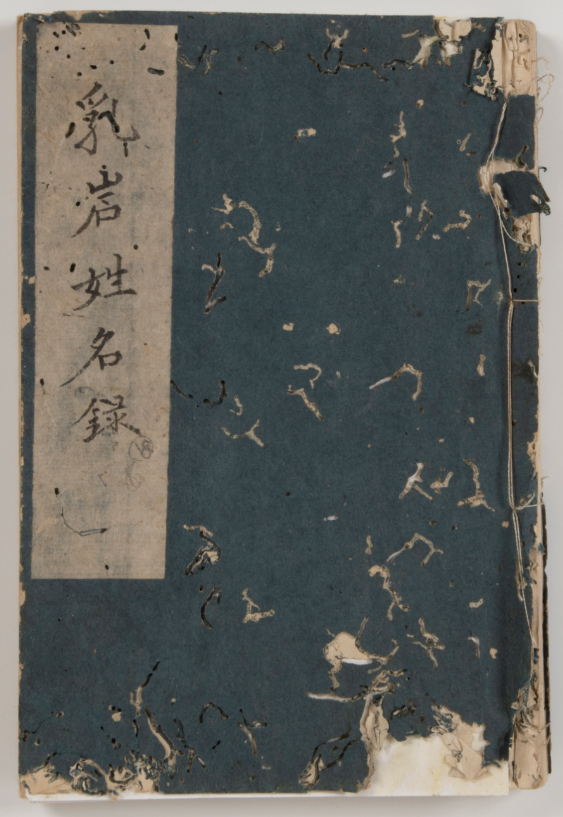 乳岩姓名録